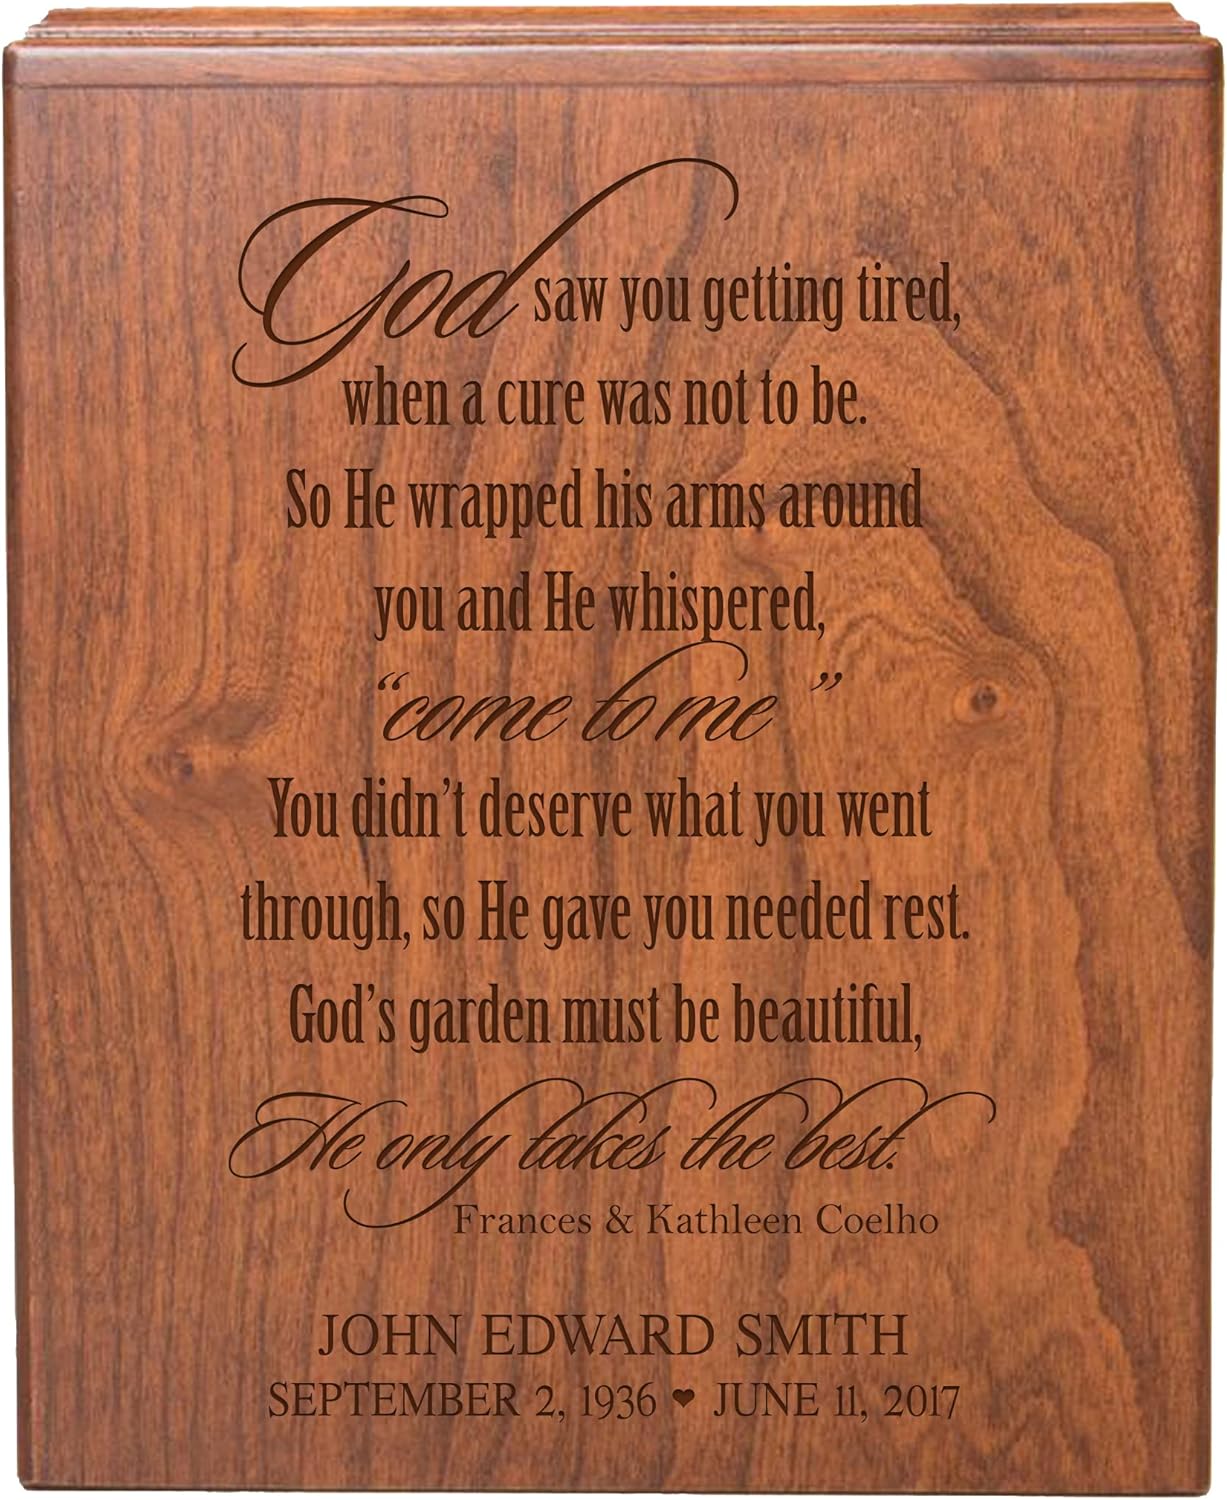 God saw you getting tired,
when a cure was not to be.
So He wrapped his arms around
you and He whispered,
“come to me ”
You didn’t deserve what you went
through, so He gave you needed rest.
God’s garden must be beautiful,
He only takes the best.
Frances & Kathleen Coelho
JOHN EDWARD SMITH
SEPTEMBER 2, 1936 ❤ JUNE 11, 2017